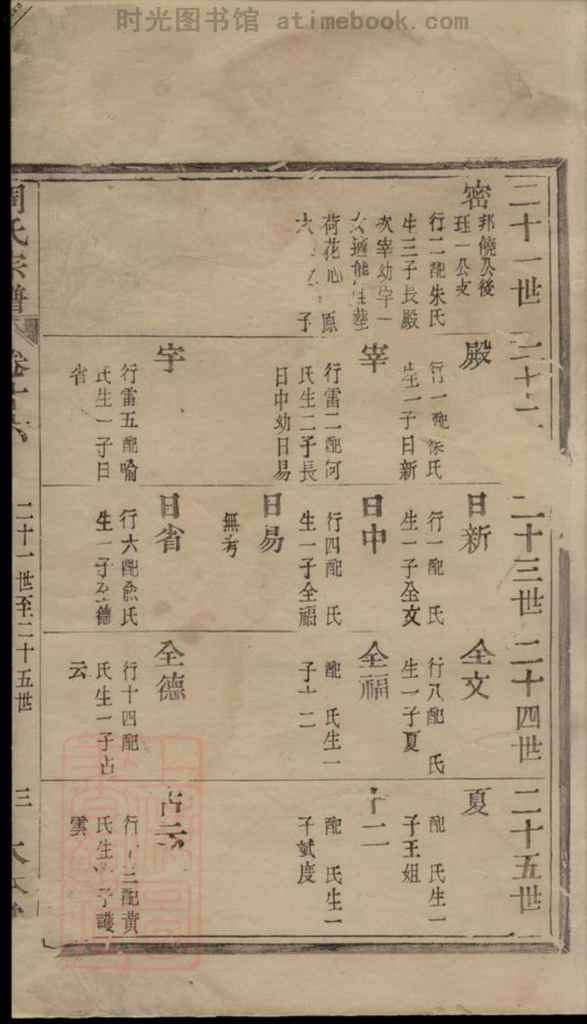 时光图书馆 atimebook.com
二十一世
密
邦饒公後
珏一公支
行二配朱氏
生三子長殿
次宰幼字一
荷花心 原
二十二
殿
行一配 氏
生一子日新
宰
行雷二配何
氏生二子長
日中幼日易
字
行雷五配喻
氏生一子日
省
二十三世
日新
行一配 氏
生一子全文
日中
行四配 氏
生一子全福
日易
無考
日省
行六配俞氏
生一子全德
二十四世
全文
行八配 氏
生一子夏
全福
配 氏生一
子十二
全德
行十四配
氏生一子占
云
二十五世
夏
配 氏生一
子王姐
十二
配 氏生一
子斌度
占云
行 三配黄
氏生 子護
雲
周氏宗譜
卷十六
二十一世至二十五世
三